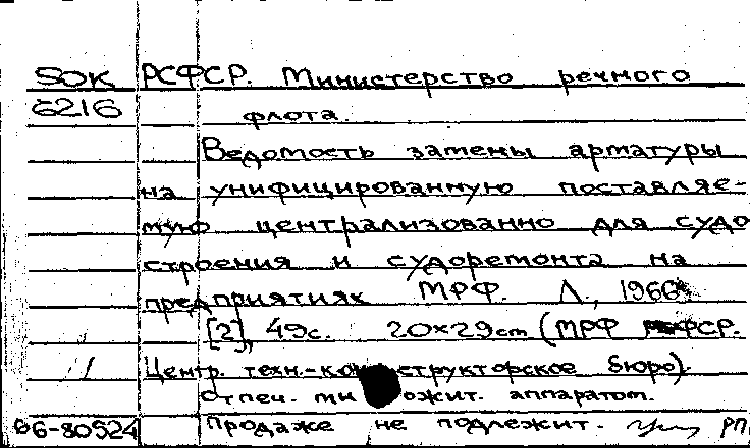 50K РСФСР. Министерство речного
6216 флота.
Ведомость замены арматуры
на унифицированную поставляе-
мую централизованно для судо
строения и судоремонта на
предприятиях МРФ. Л., 1966.
[2], 49с. 20×29cm (МРФ РСФСР.
Центр. техн.-конструкторское бюро).
Отпеч. множит. аппаратом.
66-80524 Продаже не подлежит. РП